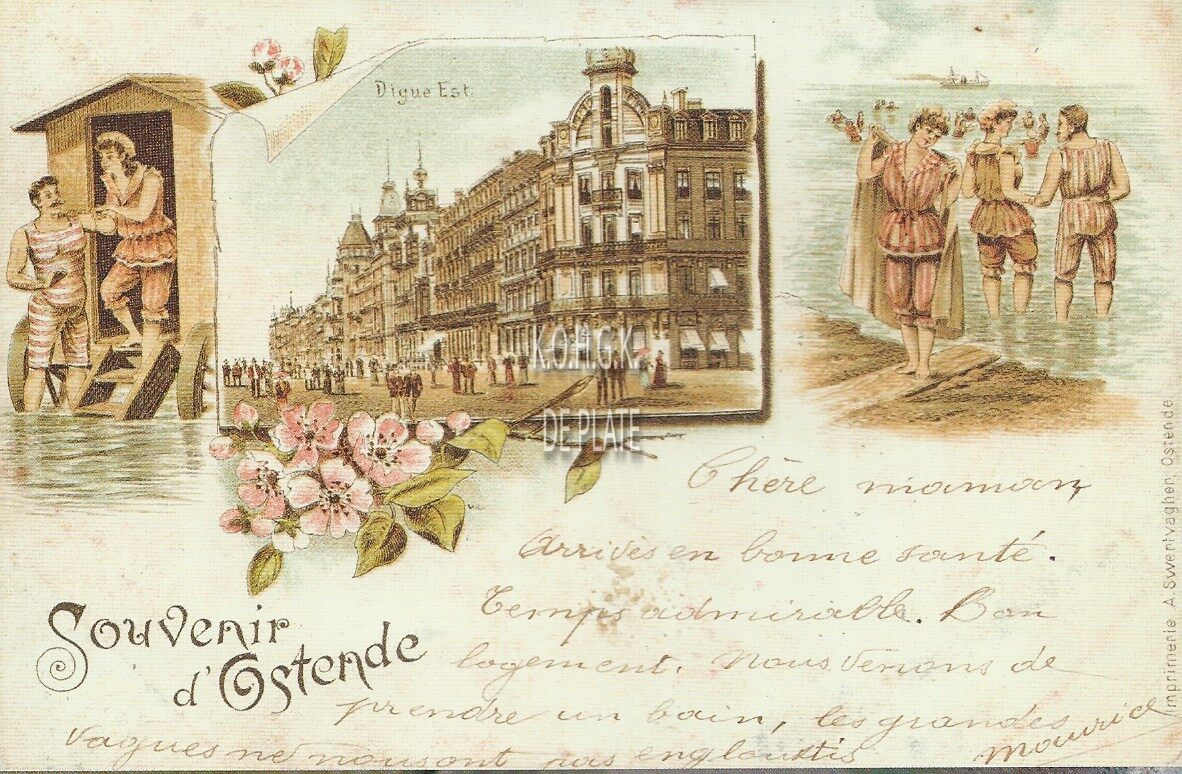 Digue Est.
K.O.H.G.K.
DE PLATE
Chère maman,
Arrivés en bonne santé.
Temps admirable. Bon
logement. Nous venons de
prendre un bain, les grandes
vagues ne nous ont pas engloutis
Maurice
Souvenir
d'Ostende
Imprimerie A. Swertvaegher, Ostende